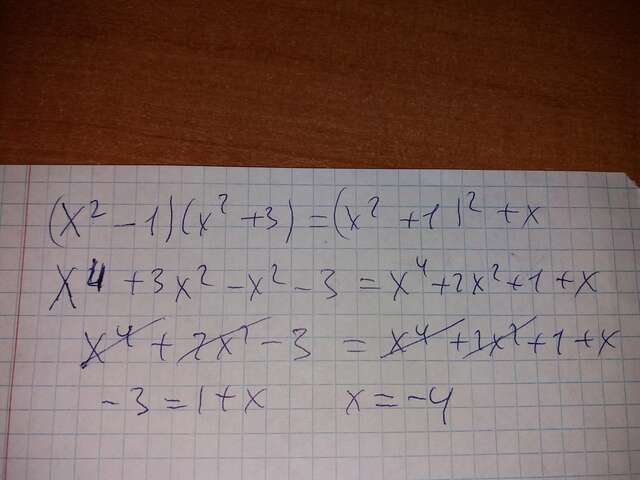 (x² - 1)(x² + 3) = (x² + 1)² + x
x⁴ + 3x² - x² - 3 = x⁴ + 2x² + 1 + x
x⁴ + 2x² - 3 = x⁴ + 2x² + 1 + x
-3 = 1 + x   x = -4